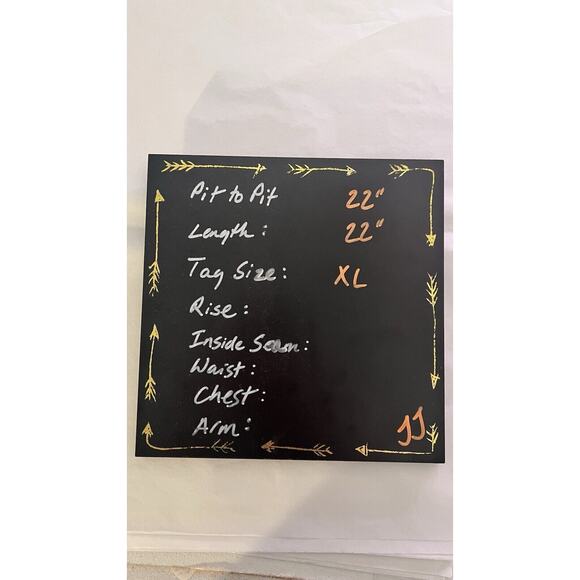 Pit to Pit 22"
Length: 22"
Tag Size: XL
Rise:
Inside Seam:
Waist:
Chest:
Arm:
JJ